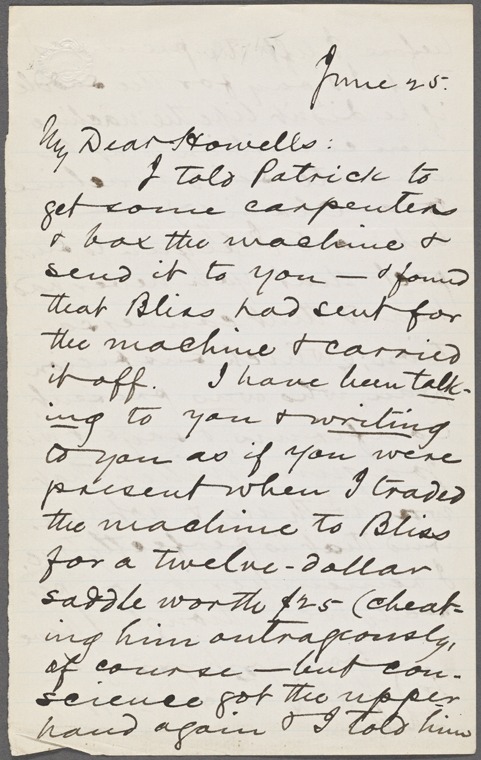 June 25.
My Dear Howells:
I told Patrick to
get some carpenters
& box the machine &
send it to you — & found
that Bliss had sent for
the machine & carried
it off. I have been talk-
ing to you & writing
to you as if you were
present when I traded
the machine to Bliss
for a twelve-dollar
saddle worth $25 (cheat-
ing him outrageously,
of course — but con-
science got the upper
hand again & I told him